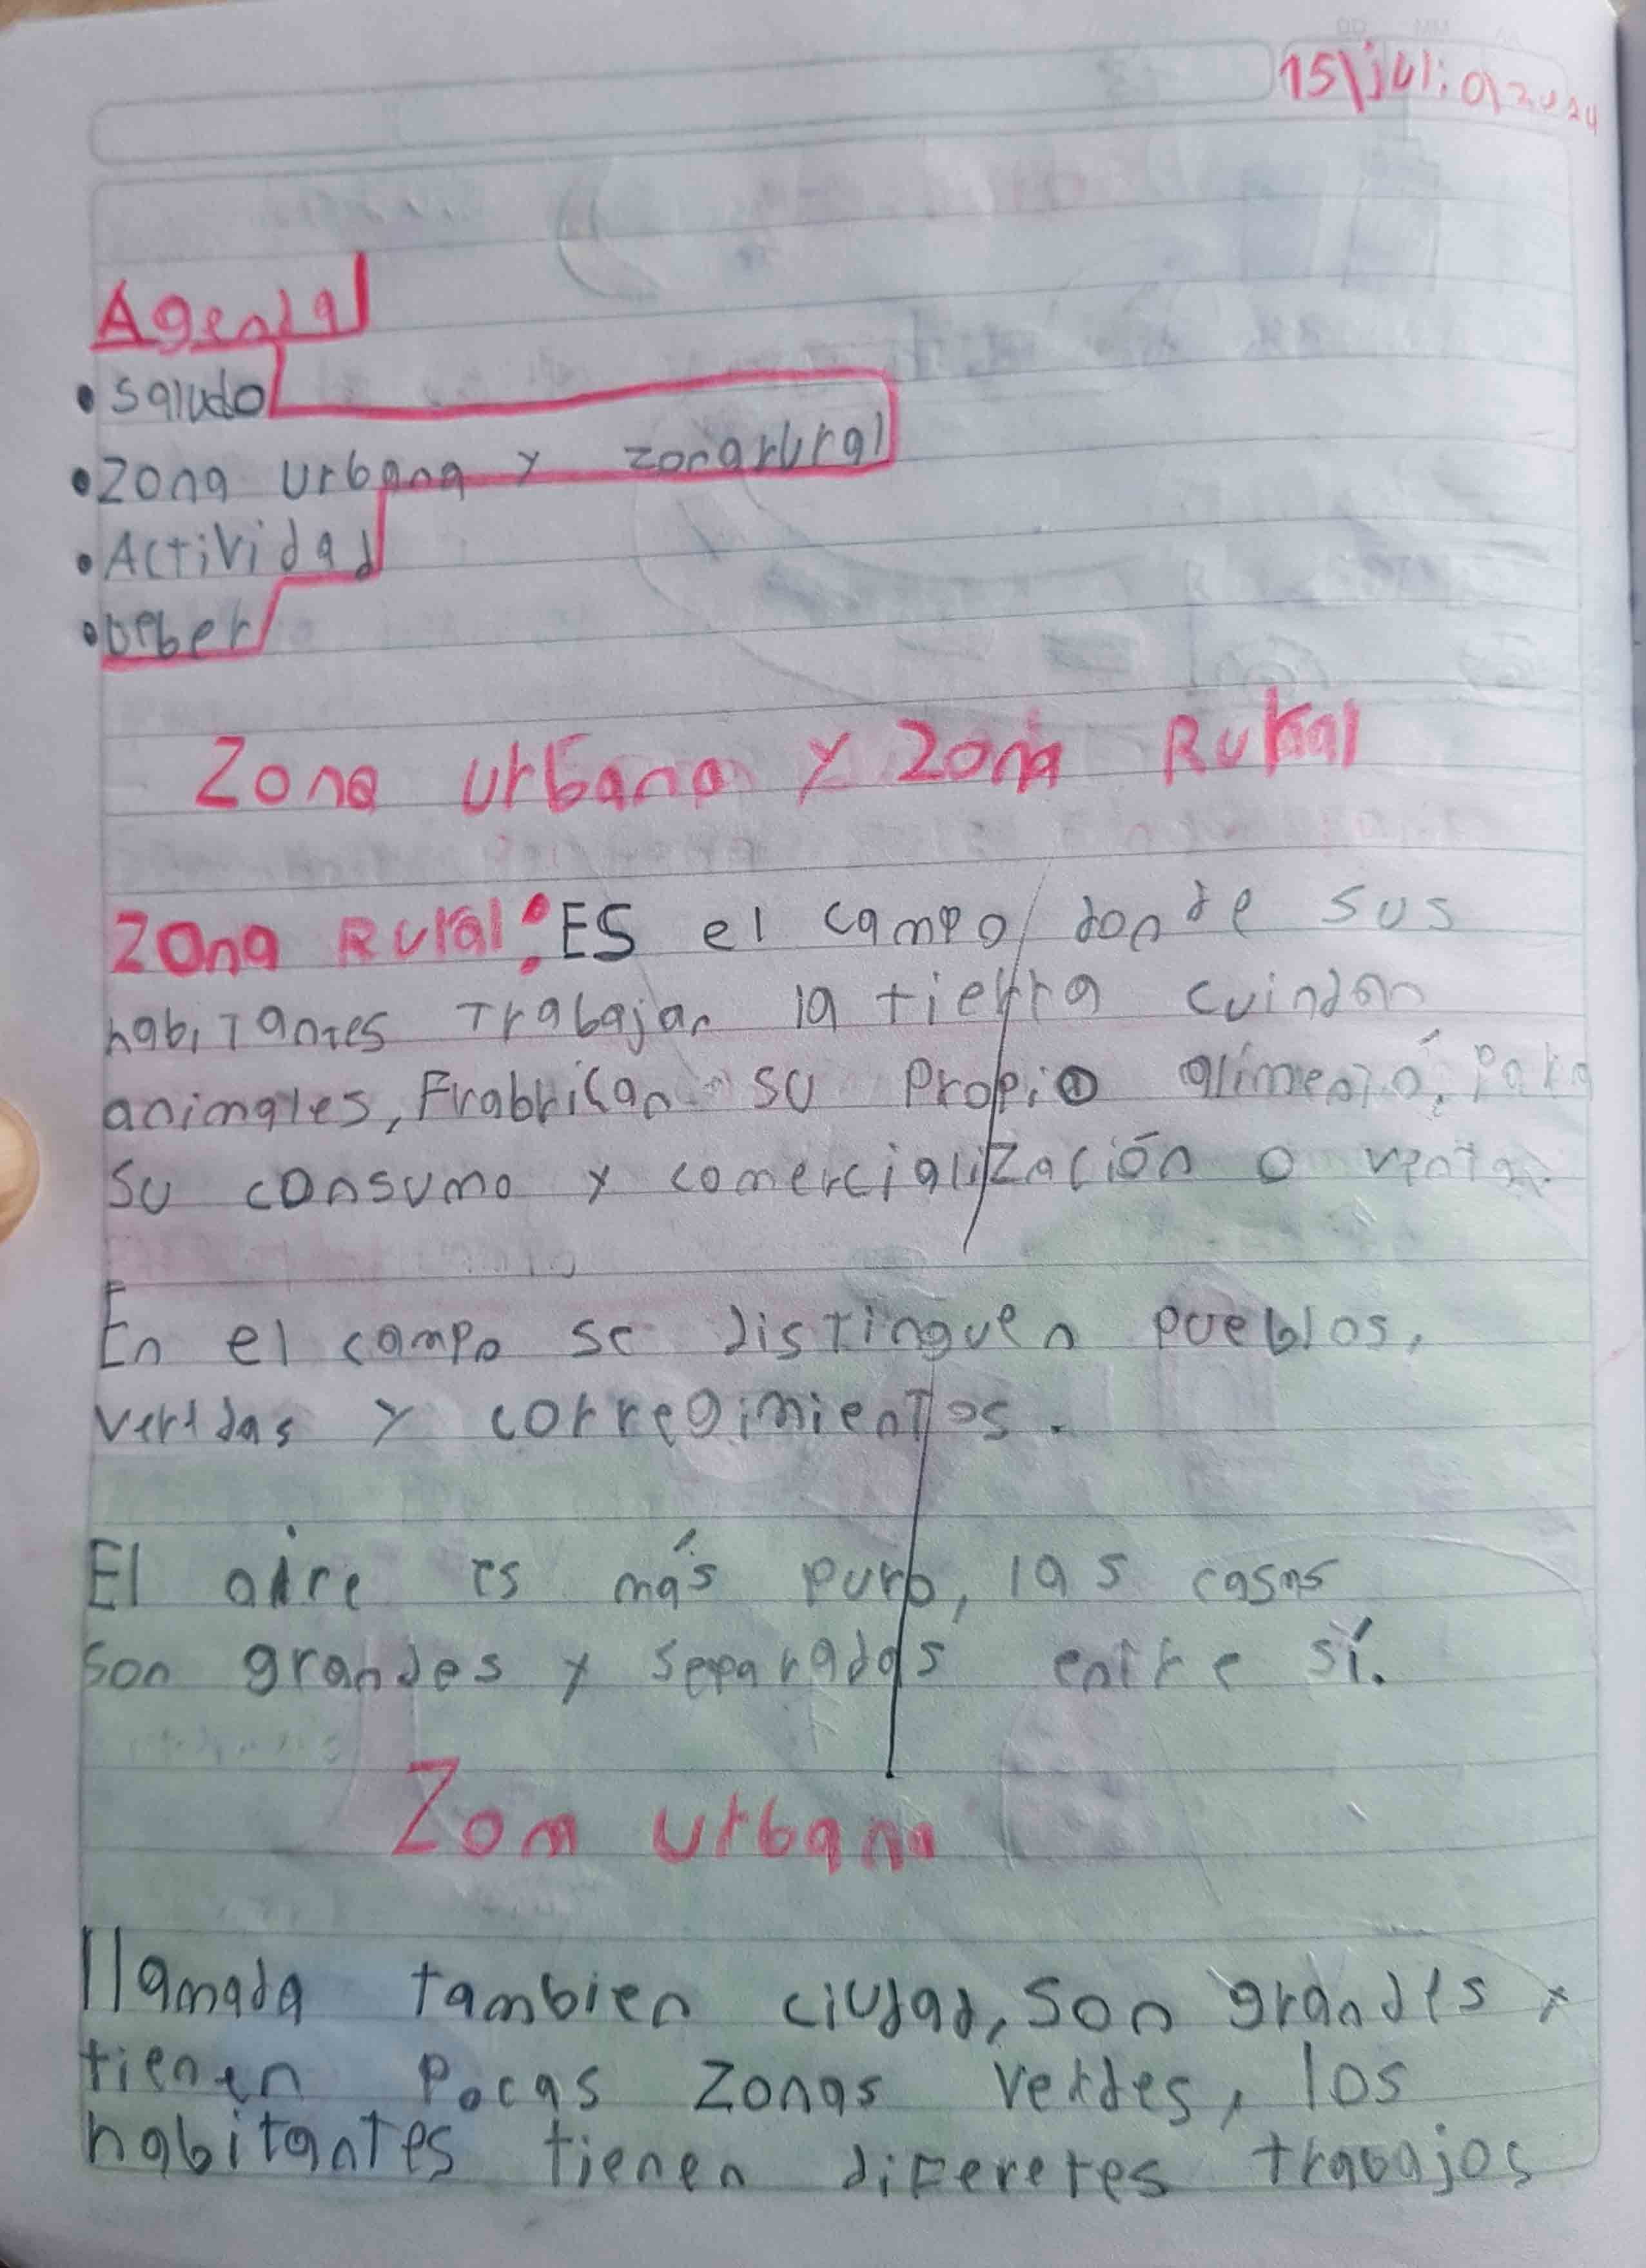 15\julio\2024
Agenda
• saludo
• Zona urbana y zona rural
• Actividad
• Deber
Zona urbana y zona Rural
Zona Rural: ES el campo donde sus
habitantes Trabajan la tierra cuindan
animales, Frabrican su propio alimento, Para
su consumo y comercialización o venta.
En el campo se distinguen pueblos,
verdas y corregimientos.
El aire es más puro, las casas
son grandes y separadas entre sí.
Zona urbana
llamada tambien ciudad, son grandes y
tienen pocas zonas verdes, los
habitantes tienen diferetes trabajos